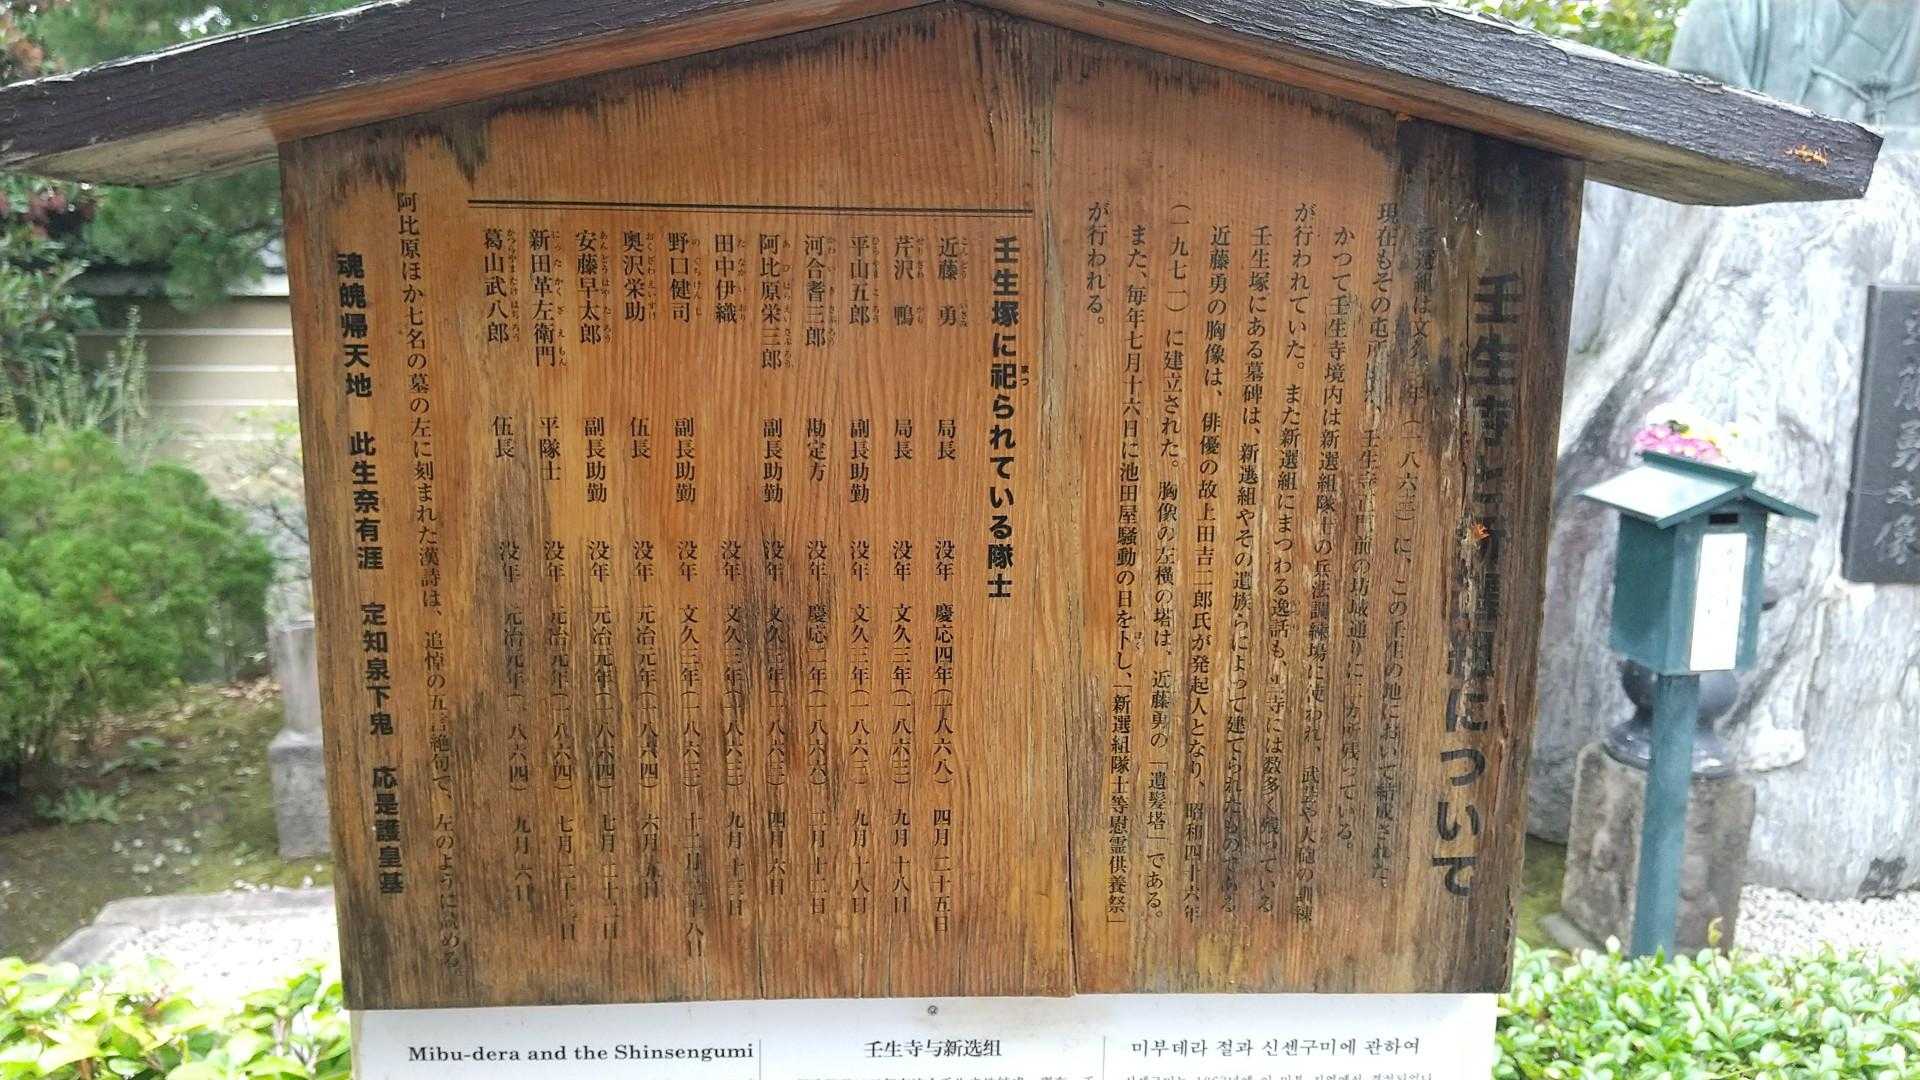 壬生寺と新選組について
新選組は文久三年(一八六三)に、この壬生の地において結成された。
現在もその屯所跡が、壬生寺正門前の坊城通りに二カ所残っている。
かつて壬生寺境内は新選組隊士の兵法調練場に使われ、武芸や大砲の訓練
が行われていた。また新選組にまつわる逸話も、当寺には数多く残っている。
壬生塚にある墓碑は、新選組やその遺族らによって建てられたものである。
近藤勇の胸像は、俳優の故上田吉二郎氏が発起人となり、昭和四十六年
(一九七一)に建立された。胸像の左横の塔は、近藤勇の「遺髪塔」である。
また、毎年七月十六日に池田屋騒動の日を卜し、「新選組隊士等慰霊供養祭」
が行われる。
壬生塚に祀られている隊士
近藤 勇 局長 没年 慶応四年(一八六八) 四月二十五日
芹沢 鴨 局長 没年 文久三年(一八六三) 九月十八日
平山五郎 副長助勤 没年 文久三年(一八六三) 九月十八日
河合耆三郎 勘定方 没年 慶応二年(一八六六) 二月十二日
阿比原栄三郎 副長助勤 没年 文久三年(一八六三) 四月六日
田中伊織 没年 文久三年(一八六三) 九月十三日
野口健司 副長助勤 没年 文久三年(一八六三) 十二月二十八日
奥沢栄助 伍長 没年 元治元年(一八六四) 六月五日
安藤早太郎 副長助勤 没年 元治元年(一八六四) 七月二十二日
新田革左衛門 平隊士 没年 元治元年(一八六四) 七月二十二日
葛山武八郎 伍長 没年 元治元年(一八六四) 九月六日
阿比原ほか七名の墓の左に刻まれた漢詩は、追悼の五言絶句で、左のように読める。
魂魄帰天地 此生奈有涯 定知泉下鬼 応是護皇基
Mibu-dera and the Shinsengumi
壬生寺与新选组
미부데라 절과 신센구미에 관하여